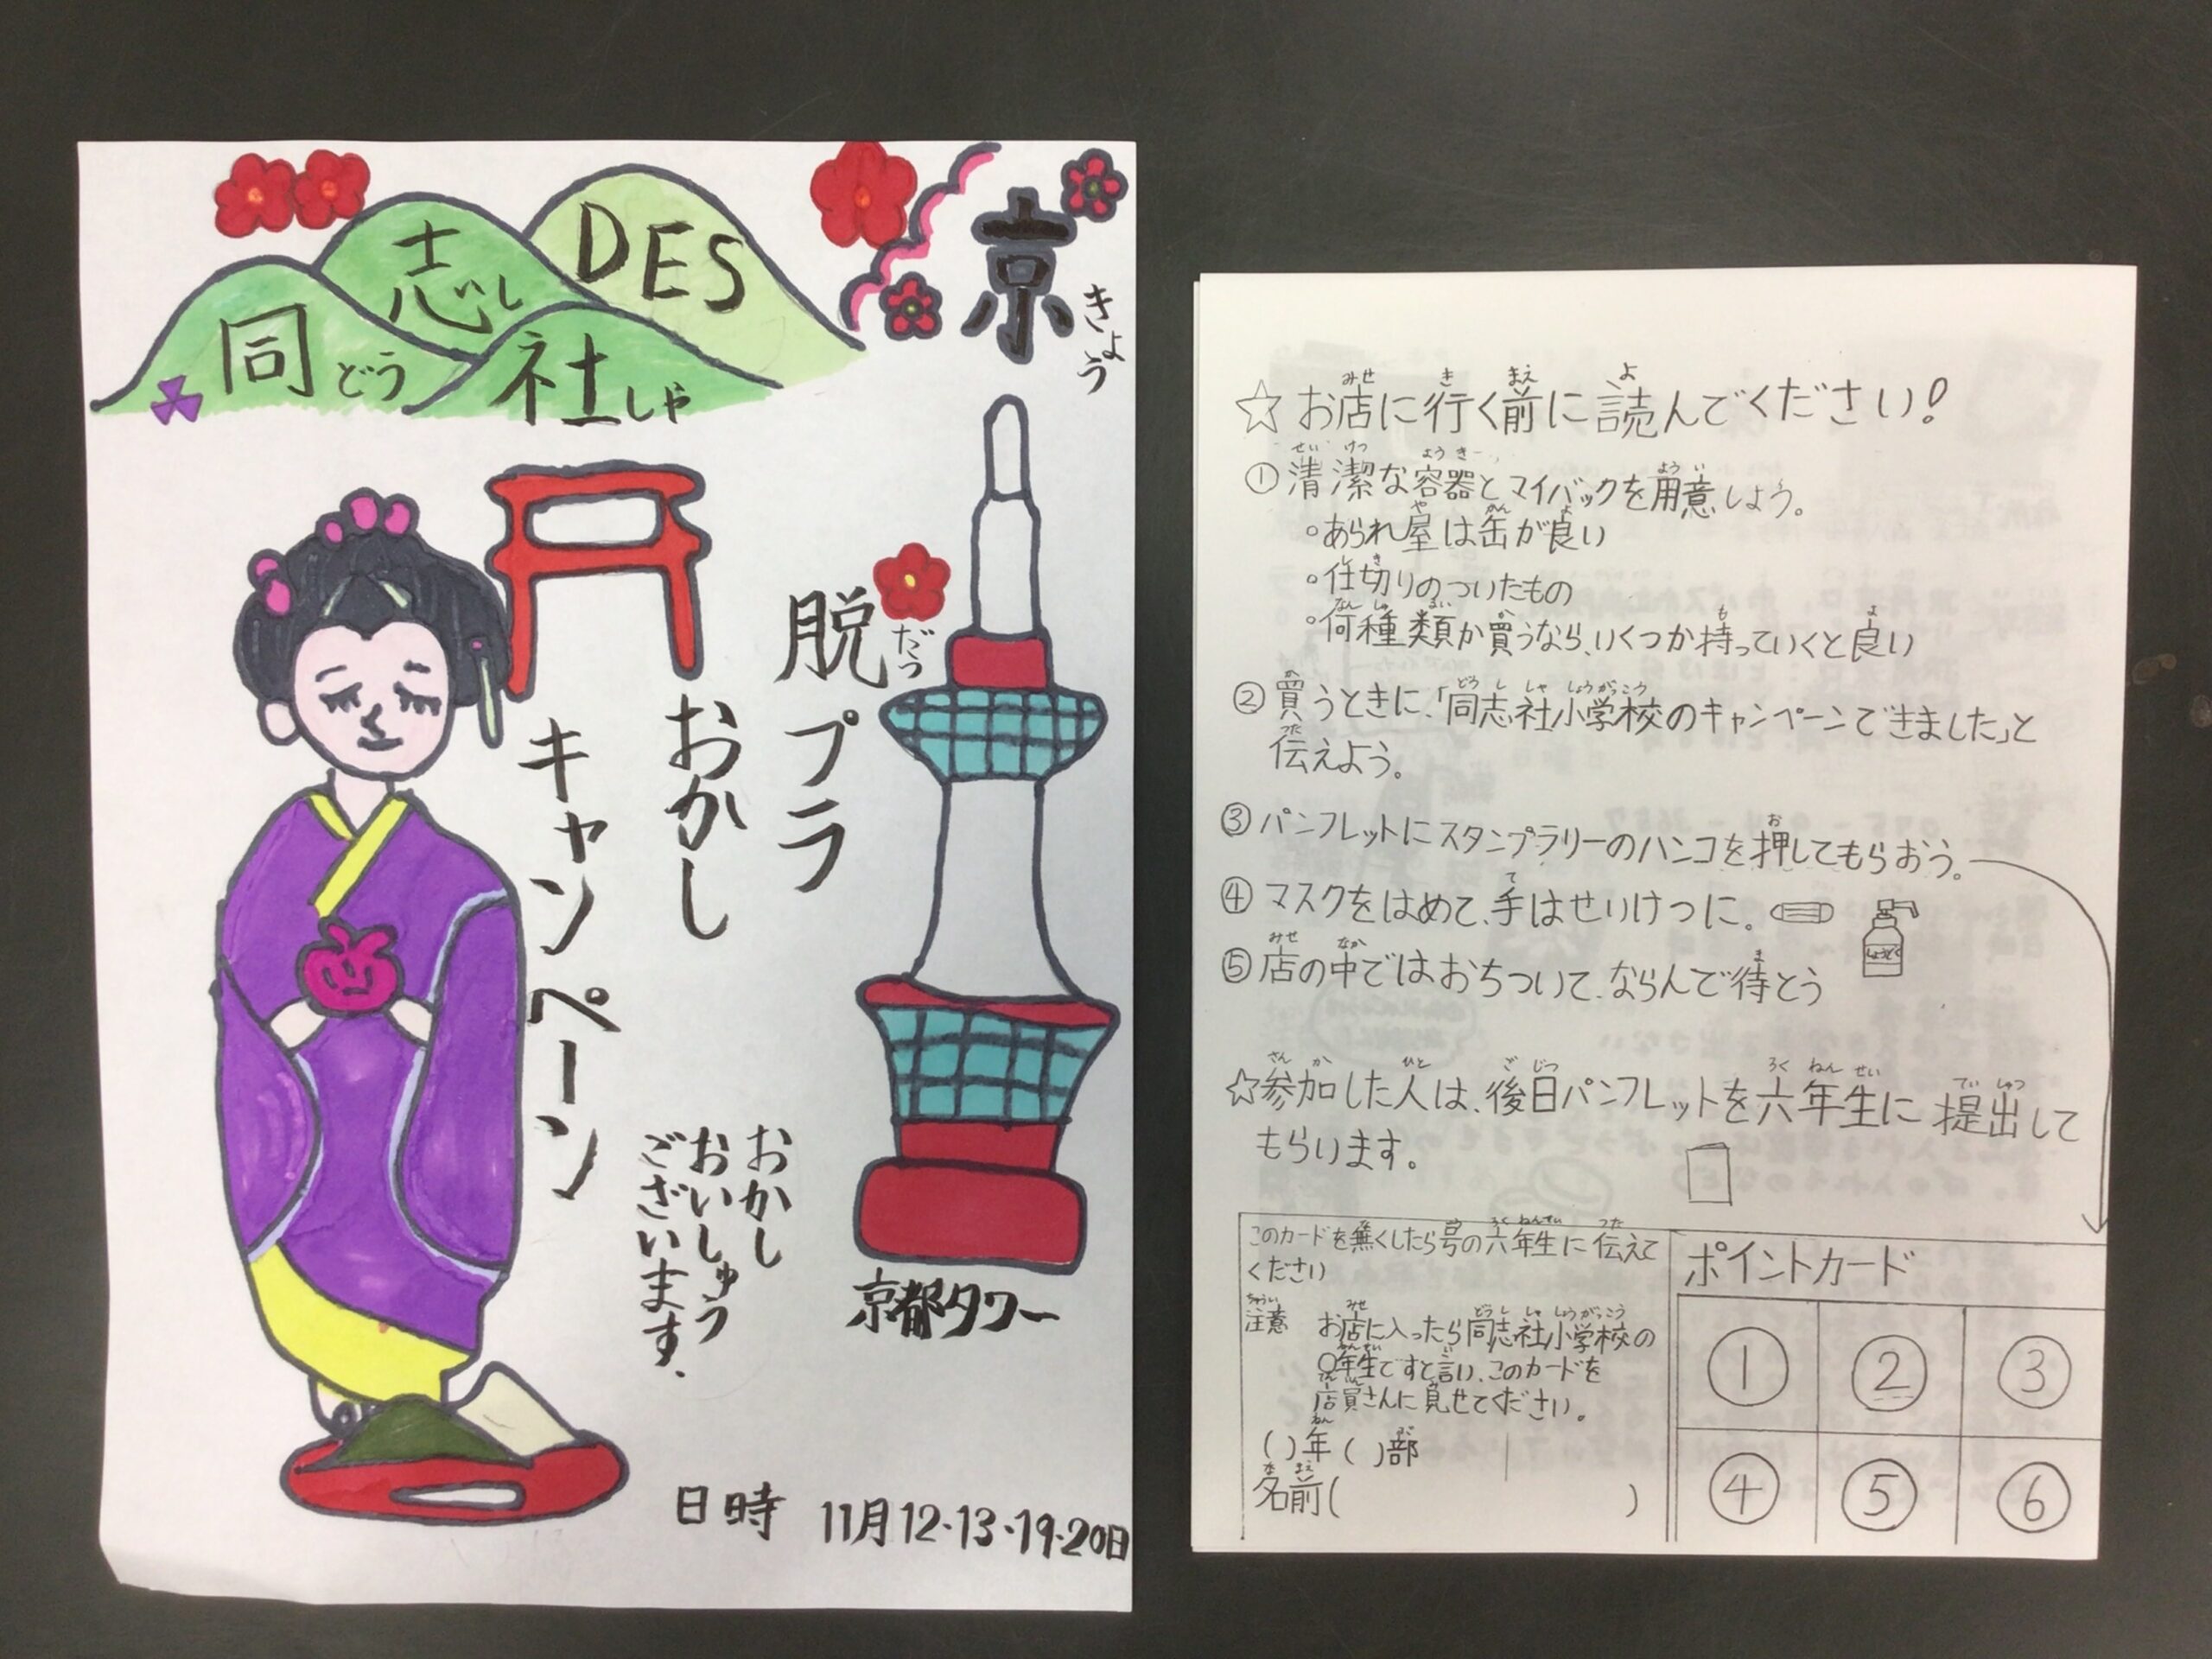 同どう
志し
社しゃ
DES
京きょう
脱だつプラ
おかし
キャンペーン
おかし
おいしゅう
ございます.
京都タワー
日時 11月12・13・19・20日
☆お店に行く前に読んでください!
①清潔な容器とマイバックを用意しよう。
◦あられ屋は缶が良い
◦仕切りのついたもの
◦何種類か買うなら、いくつか持っていくと良い
②買うときに、「同志社小学校のキャンペーンできました」と
伝えよう。
③パンフレットにスタンプラリーのハンコを押してもらおう。
④マスクをはめて、手はせいけつに。
⑤店の中ではおちついて、ならんで待とう
☆参加した人は、後日パンフレットを六年生に提出して
もらいます。
このカードを無くしたら号の六年生に伝えて
ください
注意 お店に入ったら同志社小学校の
○年生ですと言い、このカードを
店員さんに見せてください。
( )年( )部
名前( )
ポイントカード
① ② ③
④ ⑤ ⑥